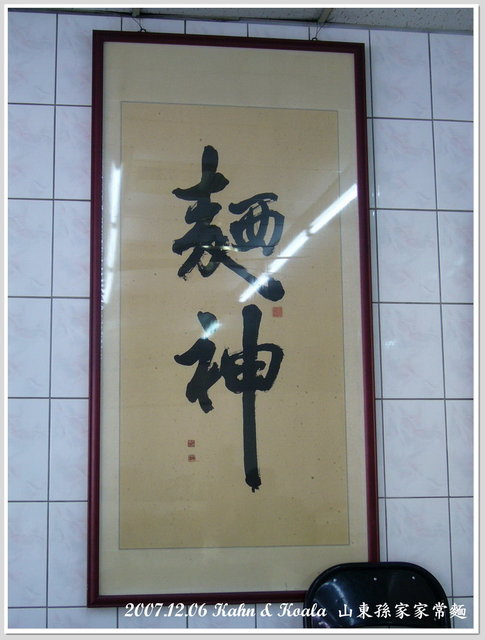 麵神
2007.12.06 Kahn & Koala 山東孫家家常麵